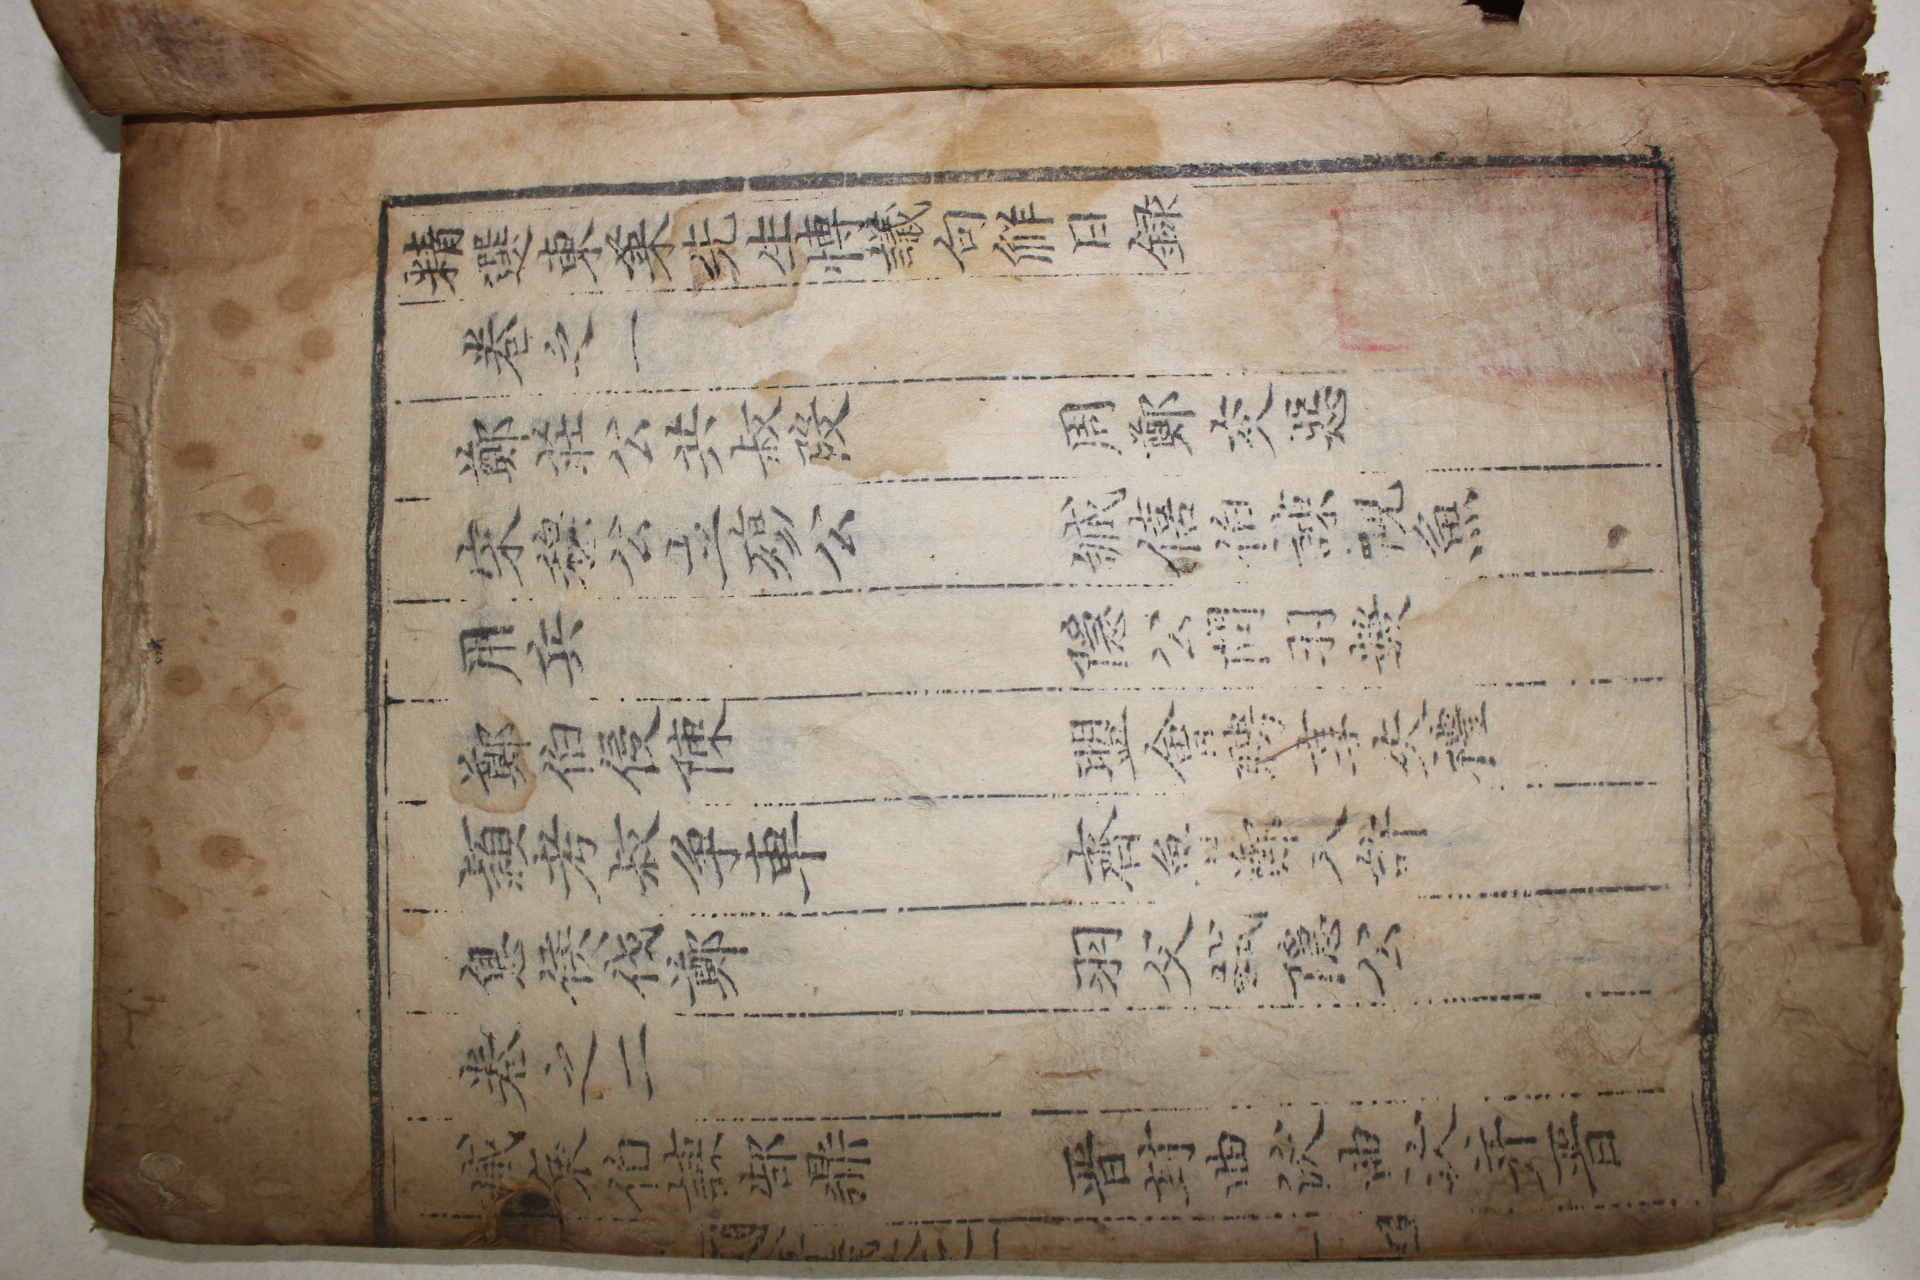 精選東萊先生博議句觧目録
卷之一
鄭莊公共叔段 周鄭交惡
宋穆公立殤公 諴僖伯諫觀魚
用兵 隱公問羽數
鄭伯侵陳 盟會聘享失禮
頴考叔争車 齊魯鄭入許
息侯伐鄭 羽父弑隱公
卷之二
臧哀伯諫郜鼎 晋封曲沃